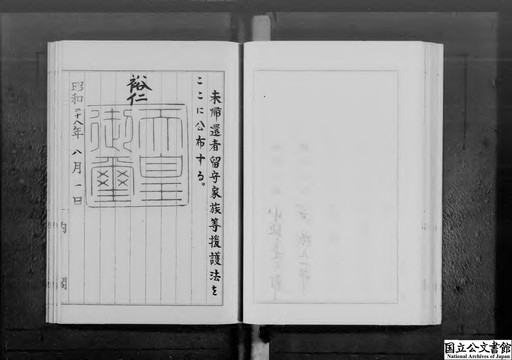 未帰還者留守家族等援護法を
ここに公布する。
裕仁
天皇
御璽
昭和二十八年八月一日
内閣
国立公文書館
National Archives of Japan